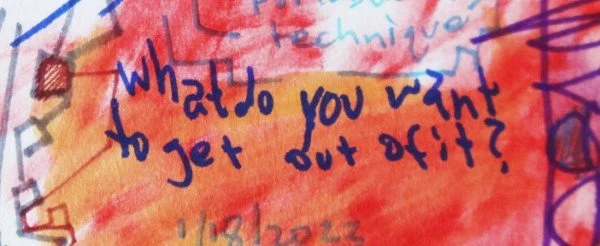 technique
What do you want
to get out of it?
1/18/2022